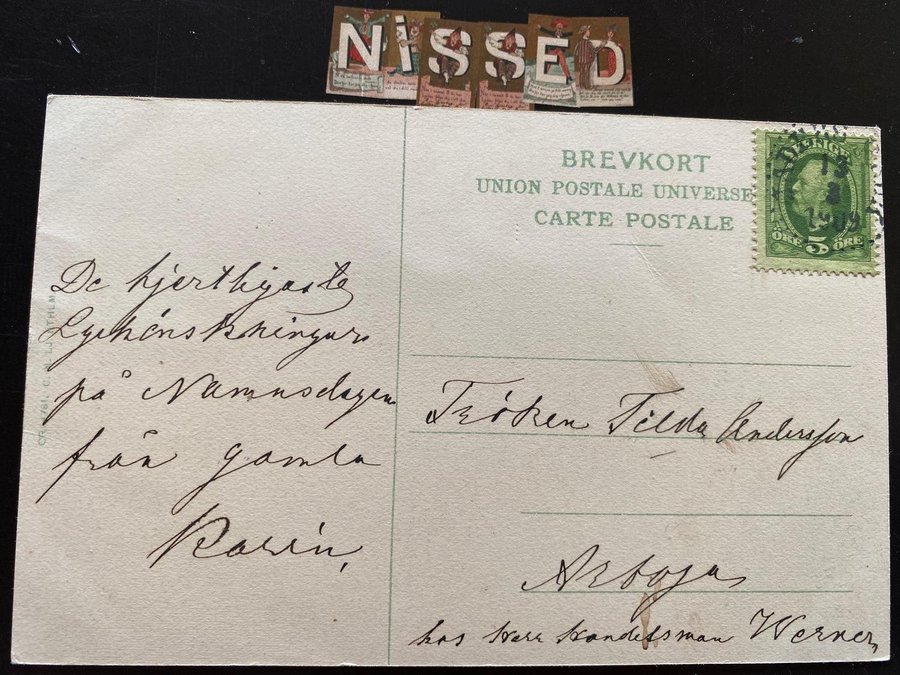 NISSED
BREVKORT
UNION POSTALE UNIVERSE
CARTE POSTALE
SVERIGE
13
1909
ÖRE 5 ÖRE
De hjertligaste
Lyckönskningar
på Namnsdagen
från gamla
Karin,
Fröken Tilda Andersson
Arboga
hos Herr Handelsman Werner,